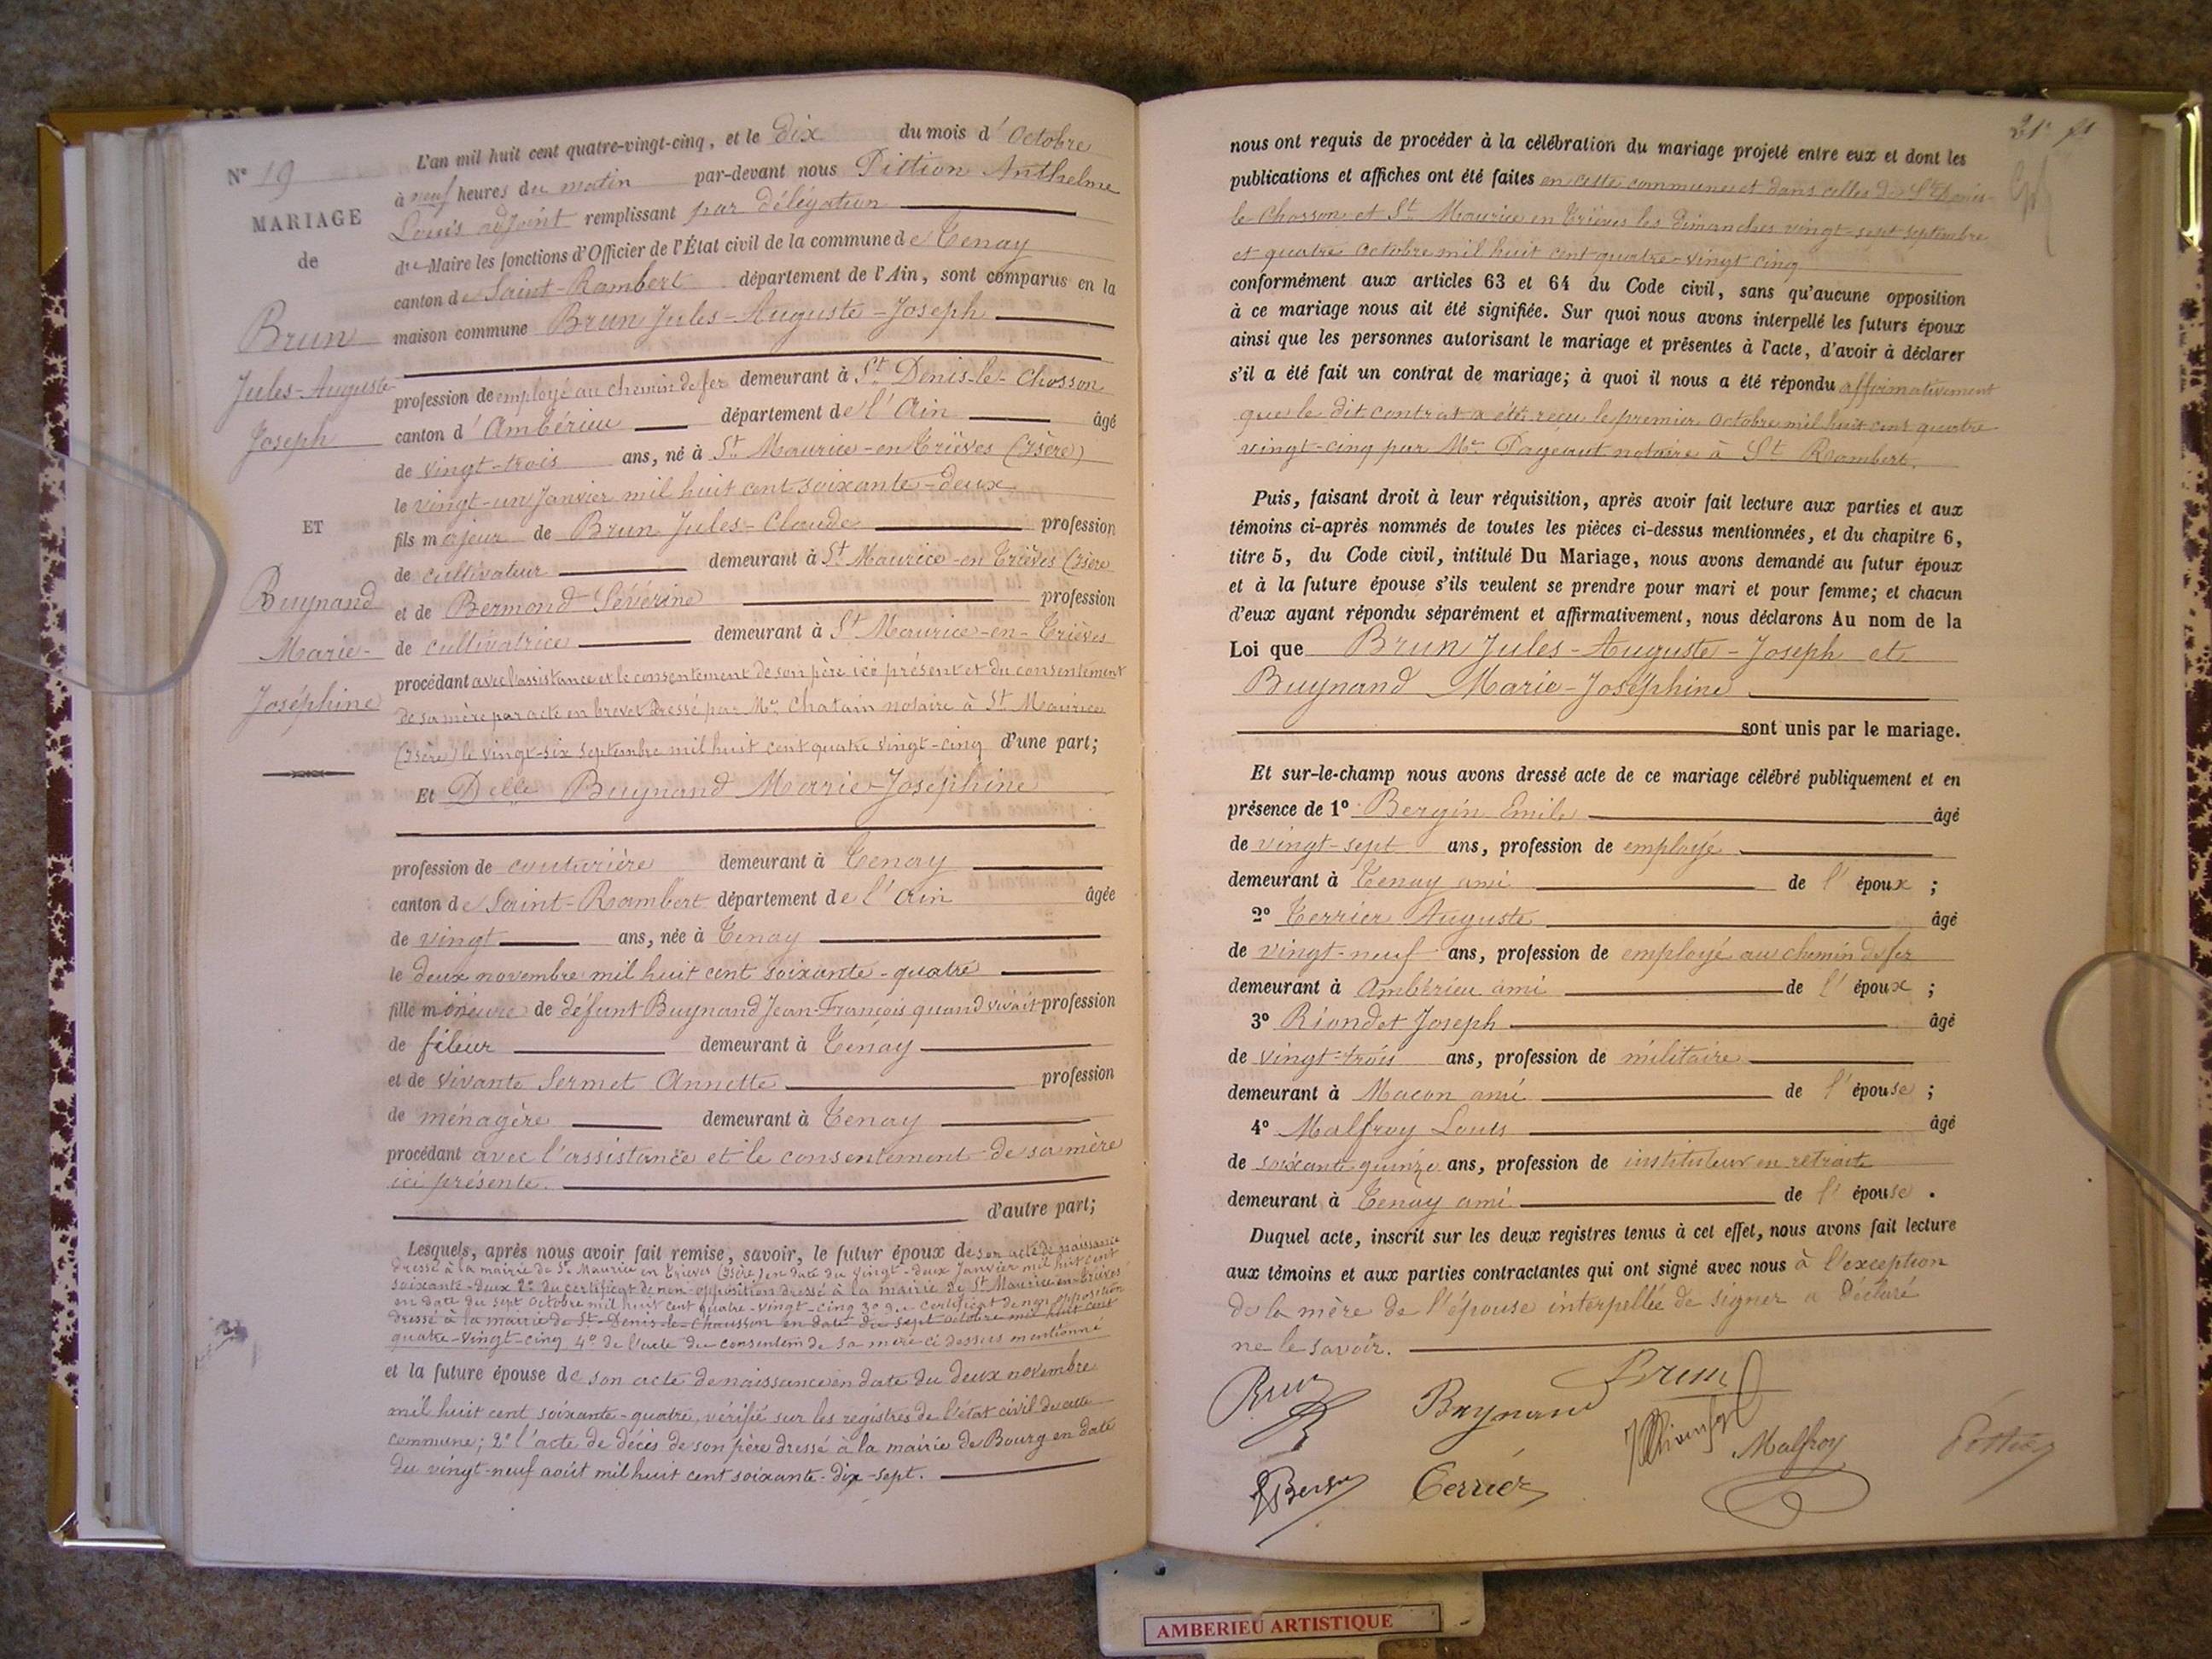 N° 19
MARIAGE
de
Brun
Jules-Auguste-
Joseph
ET
Buynand
Marie-
Joséphine
L'an mil huit cent quatre-vingt-cinq, et le Dix du mois d'Octobre
à neuf heures du matin par-devant nous Pittion Anthelme
Louis adjoint remplissant par délégation
du Maire les fonctions d'Officier de l'État civil de la commune de Tenay
canton de Saint-Rambert département de l'Ain, sont comparus en la
maison commune Brun Jules-Auguste-Joseph
profession de employé au chemin de fer demeurant à St Denis-le-Chosson
canton d'Ambérieu département de l'Ain âgé
de vingt-trois ans, né à St Maurice-en-Trièves (Isère)
le vingt-un Janvier mil huit cent soixante-deux
fils majeur de Brun Jules-Claude profession
de cultivateur demeurant à St Maurice-en Trièves (Isère
et de Bermond Séverine profession
de cultivatrice demeurant à St Maurice-en-Trièves
procédant avec l'assistance et le consentement de son père ici présent et du consentement
de sa mère par acte en brevet dressé par Me Chatain notaire à St Maurice
(Isère) le vingt-six septembre mil huit cent quatre vingt-cinq d'une part;
Et Delle Buynand Marie-Joséphine
profession de couturière demeurant à Tenay
canton de Saint-Rambert département de l'Ain âgée
de vingt ans, née à Tenay
le deux novembre mil huit cent soixante-quatre
fille mineure de défunt Buynand Jean-François quand vivait profession
de fileur demeurant à Tenay
et de vivante Sermet Annette profession
de ménagère demeurant à Tenay
procédant avec l'assistance et le consentement de sa mère
ici présente.
d'autre part;
Lesquels, après nous avoir fait remise, savoir, le futur époux de son acte de naissance
dressé à la mairie de St Maurice en Trièves (Isère) en date du vingt-deux Janvier mil huit cent
soixante-deux 2° du certificat de non-opposition dressé à la mairie de St Maurice-en-Trièves
en date du sept Octobre mil huit cent quatre-vingt-cinq 3° du certificat de non opposition
dressé à la mairie de St-Denis-le-Chausson en date du sept octobre mil huit cent
quatre-vingt-cinq 4° de l'acte du consentem de sa mère ci dessus mentionné
et la future épouse de son acte de naissance en date du deux novembre
mil huit cent soixante-quatre, vérifié sur les registres de l'état civil de cette
commune; 2° l'acte de décès de son père dressé à la mairie de Bourg en date
du vingt-neuf août mil huit cent soixante-dix-sept.
nous ont requis de procéder à la célébration du mariage projeté entre eux et dont les
publications et affiches ont été faites en cette commune et dans celles de St Denis-
le-Chosson et St Maurice en Trièves les dimanches vingt sept septembre
et quatre Octobre mil huit cent quatre-vingt cinq
conformément aux articles 63 et 64 du Code civil, sans qu'aucune opposition
à ce mariage nous ait été signifiée. Sur quoi nous avons interpellé les futurs époux
ainsi que les personnes autorisant le mariage et présentes à l'acte, d'avoir à déclarer
s'il a été fait un contrat de mariage; à quoi il nous a été répondu affirmativement
que le dit contrat a été reçu le premier Octobre mil huit cent quatre
vingt-cinq par Me Pageaut notaire à St Rambert.
Puis, faisant droit à leur réquisition, après avoir fait lecture aux parties et aux
témoins ci-après nommés de toutes les pièces ci-dessus mentionnées, et du chapitre 6,
titre 5, du Code civil, intitulé Du Mariage, nous avons demandé au futur époux
et à la future épouse s'ils veulent se prendre pour mari et pour femme; et chacun
d'eux ayant répondu séparément et affirmativement, nous déclarons Au nom de la
Loi que Brun Jules-Auguste-Joseph et
Buynand Marie-Joséphine
sont unis par le mariage.
Et sur-le-champ nous avons dressé acte de ce mariage célébré publiquement et en
présence de 1° Bergin Emile âgé
de vingt-sept ans, profession de employé
demeurant à Tenay ami de l'époux ;
2° Terrier Auguste âgé
de vingt-neuf ans, profession de employé au chemin de fer
demeurant à Ambérieu ami de l'époux ;
3° Riondet Joseph âgé
de vingt-trois ans, profession de militaire
demeurant à Macon ami de l'épouse ;
4° Malfroy Louis âgé
de soixante quinze ans, profession de instituteur en retraite
demeurant à Tenay ami de l'épouse .
Duquel acte, inscrit sur les deux registres tenus à cet effet, nous avons fait lecture
aux témoins et aux parties contractantes qui ont signé avec nous à l'exception
de la mère de l'épouse interpellée de signer a déclaré
ne le savoir.
Brun Buynand Brun
Malfroy
Terrier
AMBERIEU ARTISTIQUE